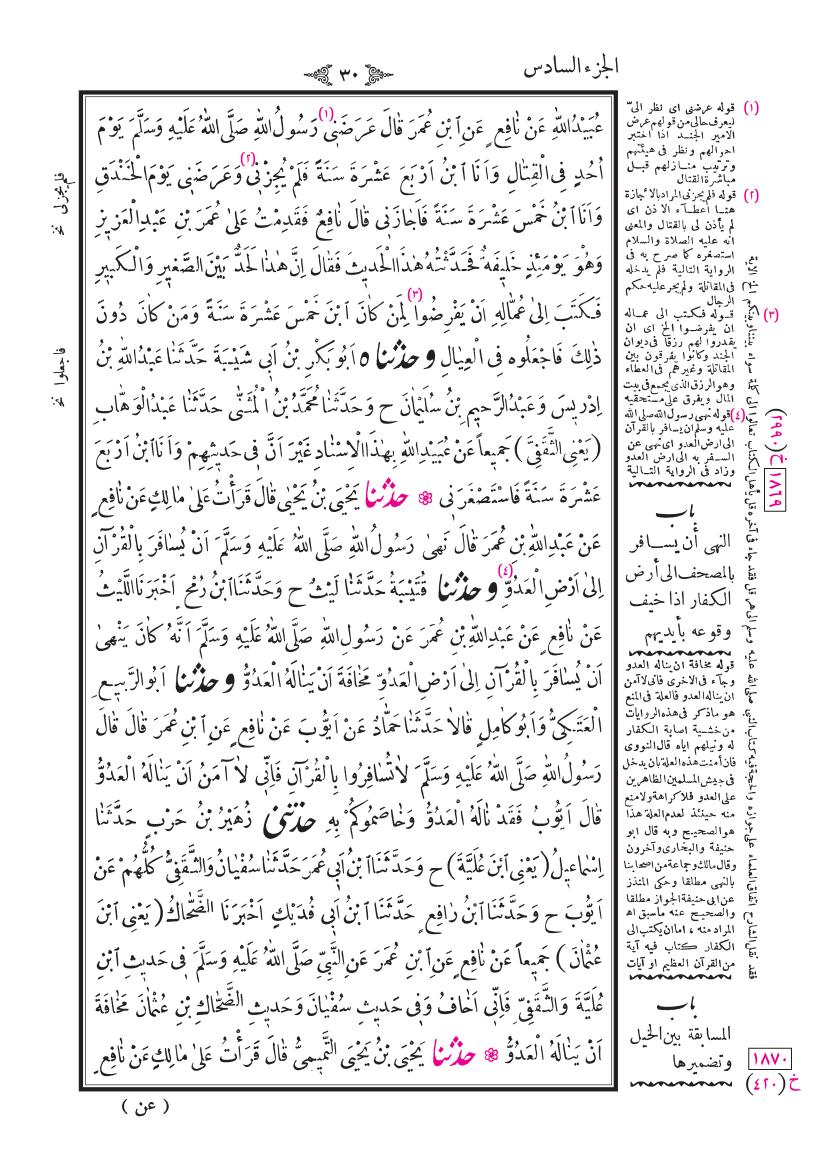 الجزء السادس
٣٠
عُبَيْدِاللّٰهِ عَنْ نَافِعٍ عَنِ ابْنِ عُمَرَ قَالَ عَرَضَنِى (١) رَسُولُ اللّٰهِ صَلَّى اللّٰهُ عَلَيْهِ وَسَلَّمَ يَوْمَ
اُحُدٍ فِى الْقِتَالِ وَاَنَا ابْنُ اَرْبَعَ عَشْرَةَ سَنَةً فَلَمْ يُجِزْنِى (٢) وَعَرَضَنِى يَوْمَ الْخَنْدَقِ
وَاَنَا ابْنُ خَمْسَ عَشْرَةَ سَنَةً فَاَجَازَنِى قَالَ نَافِعٌ فَقَدِمْتُ عَلىٰ عُمَرَ بْنِ عَبْدِالْعَزِيزِ
وَهُوَ يَوْمَئِذٍ خَلِيفَةٌ فَحَدَّثْتُهُ هٰذَا الْحَدِيثَ فَقَالَ اِنَّ هٰذَا لَحَدٌّ بَيْنَ الصَّغِيرِ وَالْكَبِيرِ
فَكَتَبَ اِلىٰ عُمَّالِهِ اَنْ يَفْرِضُوا (٣) لِمَنْ كَانَ ابْنَ خَمْسَ عَشْرَةَ سَنَةً وَمَنْ كَانَ دُونَ
ذٰلِكَ فَاجْعَلُوه فِى الْعِيَالِ وحدثناه اَبُوبَكْرِ بْنُ اَبِى شَيْبَةَ حَدَّثَنَا عَبْدُاللّٰهِ بْنُ
اِدْرِيسَ وَعَبْدُالرَّحِيمِ بْنُ سُلَيْمَانَ ح وَحَدَّثَنَا مُحَمَّدُ بْنُ الْمُثَنّٰى حَدَّثَنَا عَبْدُالْوَهَّابِ
(يَعْنِى الثَّقَفِىَّ) جَمِيعاً عَنْ عُبَيْدِاللّٰهِ بِهٰذَا الْاِسْنَادِ غَيْرَ اَنَّ فِى حَدِيثِهِمْ وَاَنَا ابْنُ اَرْبَعَ
عَشْرَةَ سَنَةً فَاسْتَصْغَرَنِى ❁ حدثنا يَحْيَى بْنُ يَحْيٰى قَالَ قَرَأْتُ عَلىٰ مَالِكٍ عَنْ نَافِعٍ
عَنْ عَبْدِاللّٰهِ بْنِ عُمَرَ قَالَ نَهىٰ رَسُولُ اللّٰهِ صَلَّى اللّٰهُ عَلَيْهِ وَسَلَّمَ اَنْ يُسَافَرَ بِالْقُرْآنِ
اِلىٰ اَرْضِ الْعَدُوِّ (٤) وحدثنا قُتَيْبَةُ حَدَّثَنَا لَيْثٌ ح وَحَدَّثَنَا ابْنُ رُمْحٍ اَخْبَرَنَا اللَّيْثُ
عَنْ نَافِعٍ عَنْ عَبْدِاللّٰهِ بْنِ عُمَرَ عَنْ رَسُولِ اللّٰهِ صَلَّى اللّٰهُ عَلَيْهِ وَسَلَّمَ اَنَّهُ كَانَ يَنْهىٰ
اَنْ يُسَافَرَ بِالْقُرْآنِ اِلىٰ اَرْضِ الْعَدُوِّ مَخَافَةَ اَنْ يَنَالَهُ الْعَدُوُّ وحدثنا اَبُوالرَّبِيعِ
الْعَتَكِىُّ وَاَبُوكَامِلٍ قَالَا حَدَّثَنَا حَمَّادٌ عَنْ اَيُّوبَ عَنْ نَافِعٍ عَنِ ابْنِ عُمَرَ قَالَ قَالَ
رَسُولُ اللّٰهِ صَلَّى اللّٰهُ عَلَيْهِ وَسَلَّمَ لَاتُسَافِرُوا بِالْقُرْآنِ فَاِنِّى لَا آمَنُ اَنْ يَنَالَهُ الْعَدُوُّ
قَالَ اَيُّوبُ فَقَدْ نَالَهُ الْعَدُوُّ وَخَاصَمُوكُمْ بِهِ حدثنى زُهَيْرُ بْنُ حَرْبٍ حَدَّثَنَا
اِسْمَاعِيلُ (يَعْنِى ابْنَ عُلَيَّةَ) ح وَحَدَّثَنَا ابْنُ اَبِى عُمَرَ حَدَّثَنَا سُفْيَانُ وَالثَّقَفِىُّ كُلُّهُمْ عَنْ
اَيُّوبَ ح وَحَدَّثَنَا ابْنُ رَافِعٍ حَدَّثَنَا ابْنُ اَبِى فُدَيْكٍ اَخْبَرَنَا الضَّحَّاكُ (يَعْنِى ابْنَ
عُثْمَانَ) جَمِيعاً عَنْ نَافِعٍ عَنِ ابْنِ عُمَرَ عَنِ النَّبِىِّ صَلَّى اللّٰهُ عَلَيْهِ وَسَلَّمَ فِى حَدِيثِ ابْنِ
عُلَيَّةَ وَالثَّقَفِىِّ فَاِنِّى اَخَافُ وَفِى حَدِيثِ سُفْيَانَ وَحَدِيثِ الضَّحَّاكِ بْنِ عُثْمَانَ مَخَافَةَ
اَنْ يَنَالَهُ الْعَدُوُّ ❁ حدثنا يَحْيَى بْنُ يَحْيَى التَّمِيمِىُّ قَالَ قَرَأْتُ عَلىٰ مَالِكٍ عَنْ نَافِعٍ
( عن )
(١) قوله عرضنى اى نظر الىّ
ليعرف حالى من قولهم عرض
الامير الجند اذا اختبر
احوالهم ونظر فى هيئتهم
وترتيب منازلهم قبل
مباشرة القتال
(٢) قوله فلم يجزنى المراد بالاجازة
هنا اعطاء الاذن اى
لم يأذن لى بالقتال والمعنى
انه عليه الصلاة والسلام
استصغره كما صرح به فى
الرواية التالية فلم يدخله
فى المقاتلة ولم يجر عليه حكم
الرجال
(٣) قوله فكتب الى عماله
ان يفرضوا الخ اى ان
يقدروا لهم رزقا فى ديوان
الجند وكانوا يفرقون بين
المقاتلة وغيرهم فى العطاء
وهو الرزق الذى يجمع فى بيت
المال ويفرق على مستحقيه
(٤) قوله نهى رسول الله صلى الله
عليه وسلم ان يسافر بالقرآن
الى ارض العدو اى نهى عن
السفر به الى ارض العدو
وزاد فى الرواية التالية
باب
النهى أن يسافر
بالمصحف الى أرض
الكفار اذا خيف
وقوعه بأيديهم
قوله مخافة ان يناله العدو
وجاء فى الاخرى فانى لا آمن
ان يناله العدو فالعلة فى المنع
هو ماذكر فى هذه الروايات
من خشية اصابة الكفار
له ونيلهم اياه قال النووى
فان أمنت هذه العلة بان يدخل
فى جيش المسلمين الظاهرين
على العدو فلا كراهة ولا منع
منه حينئذ لعدم العلة هذا
هو الصحيح وبه قال ابو
حنيفة والبخارى وآخرون
وقال مالك وجماعة من اصحابنا
بالنهى مطلقا وحكى المنذر
عن ابى حنيفة الجواز مطلقا
والصحيح عنه ماسبق اه
المراد منه ، اما ان يكتب الى
الكفار كتاب فيه آية
من القرآن العظيم او آيات
باب
المسابقة بين الخيل
وتضميرها
فقد نقل الشارح اتفاق العلماء على جوازه والحجة فيه كتاب النبى صلى الله عليه وسلم الى هرقل فقد جاء فى آخره قل يا أهل الكتاب تعالوا الى كلة سواء بيننا وبينكم الآية
١٨٦٩
خ (٢٩٩٠)
١٨٧٠
خ (٤٢٠)
فلم يجز لى نخ
فاجعلوا نخ